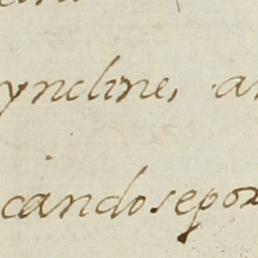 yncline, a
candosepor